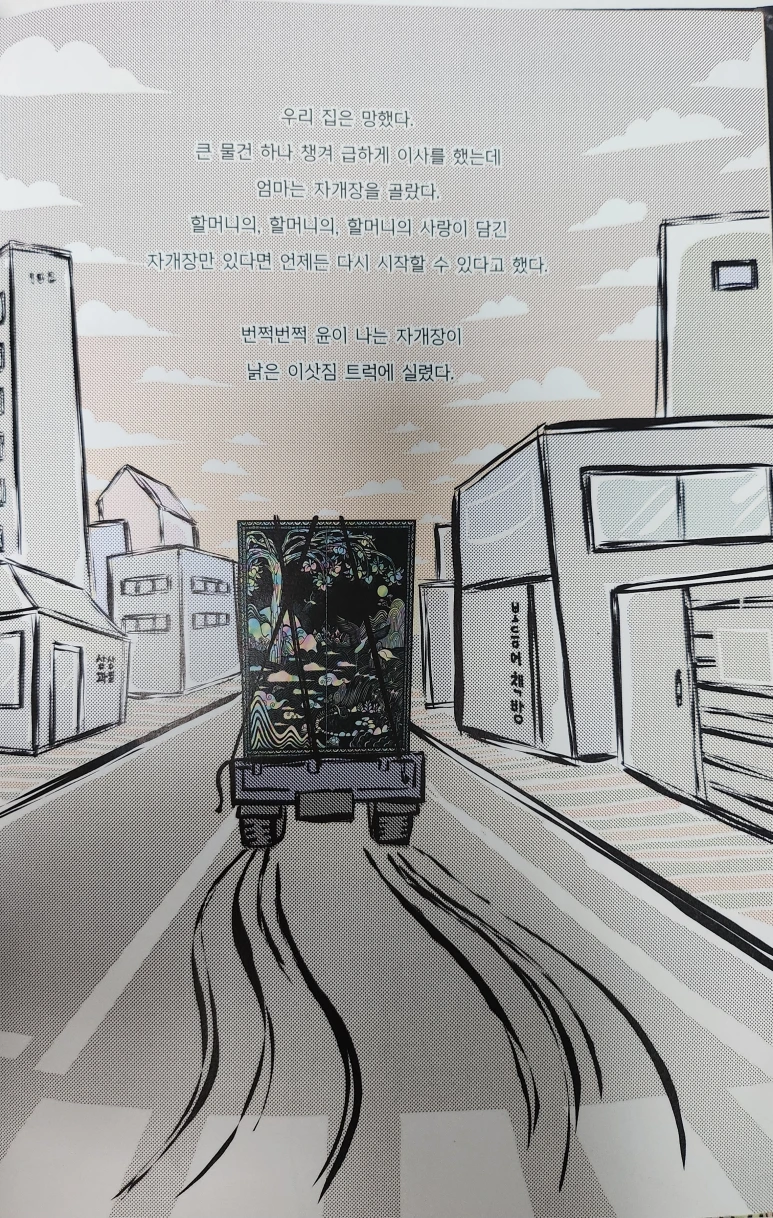 우리 집은 망했다.
큰 물건 하나 챙겨 급하게 이사를 했는데
엄마는 자개장을 골랐다.
할머니의, 할머니의, 할머니의 사랑이 담긴
자개장만 있다면 언제든 다시 시작할 수 있다고 했다.
번쩍번쩍 윤이 나는 자개장이
낡은 이삿짐 트럭에 실렸다.
상상
보름에 책방